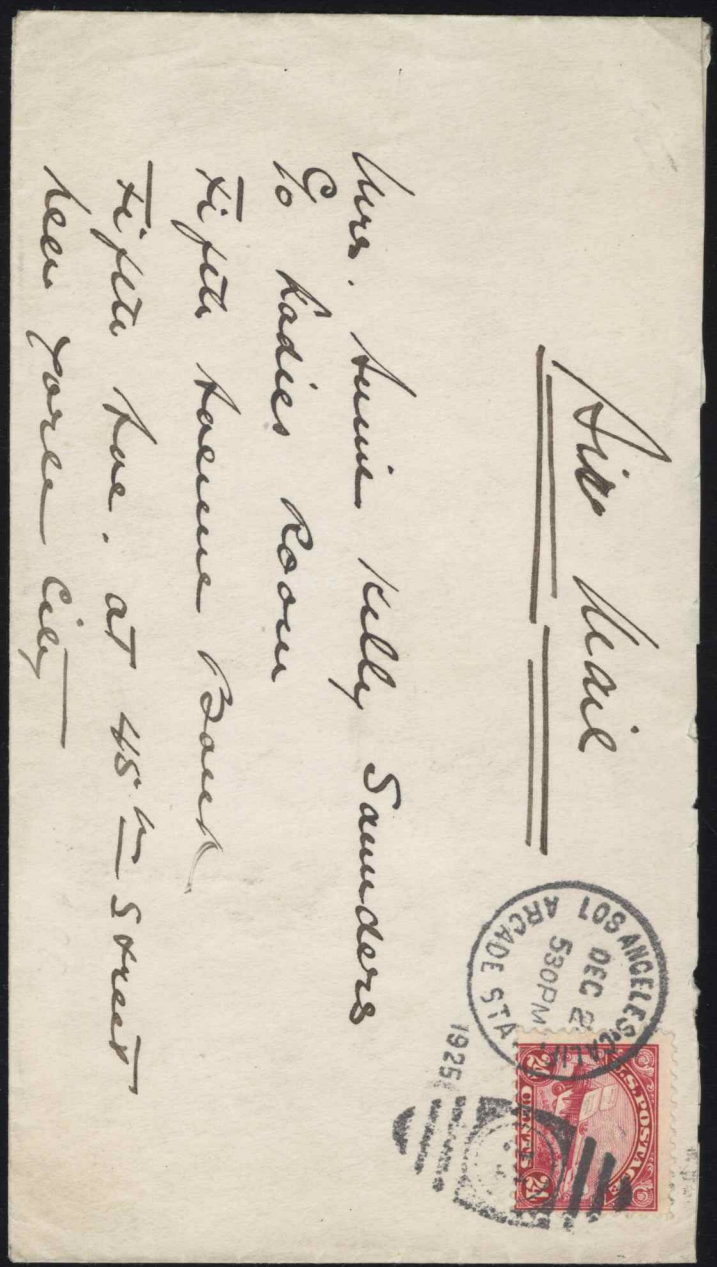 Air Mail
Mrs. Annie Kelly Saunders
c/o Ladies Room
Fifth Avenue Bank
Fifth Ave. at 45th Street
New York City
LOS ANGELES, CALIF.
DEC 2
530PM
ARCADE STA.
1925
U.S. POSTAGE
24 CENTS 24